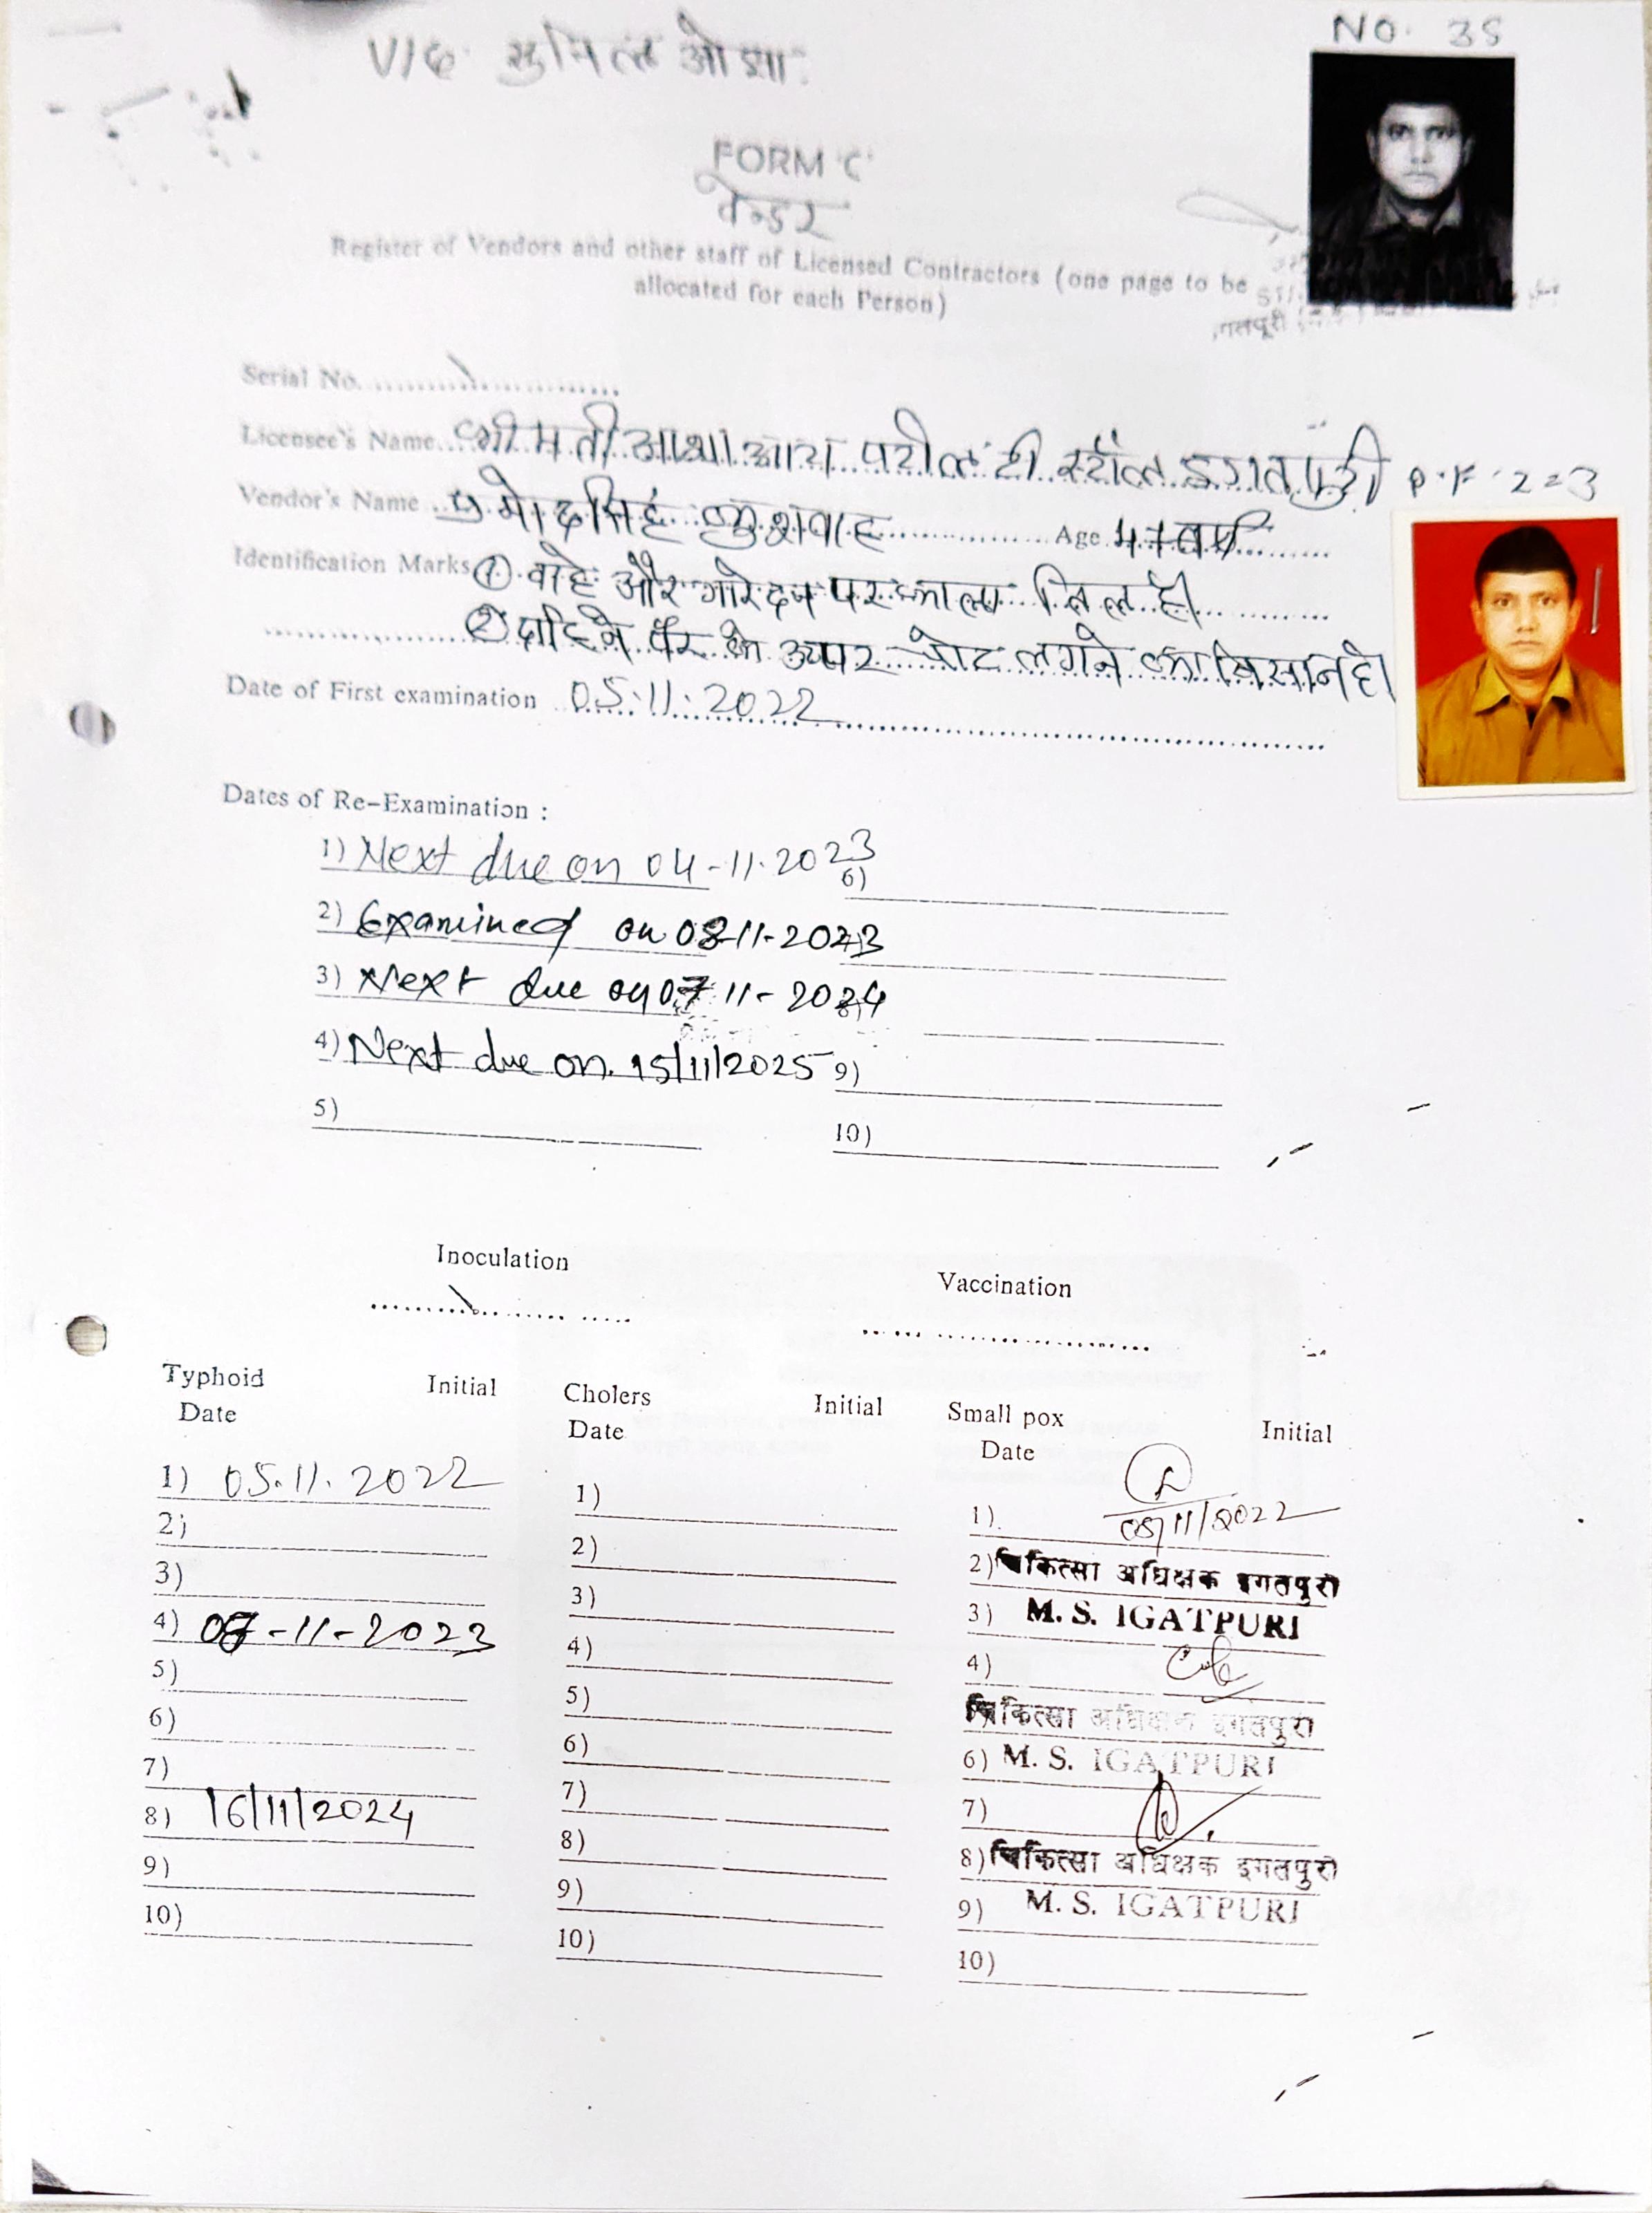 NO. 35
V/C सुनिल ओझा
FORM 'C'
वेन्डर
Register of Vendors and other staff of Licensed Contractors (one page to be
allocated for each Person)
Serial No.
Licensee's Name श्रीमती आशा आय पटील टी स्टॉल इगतपुरी P.F 2=3
Vendor's Name प्रमोदसिंह कुशवाह Age 47 वर्ष
Identification Marks ① और पर काला तिल है।
② दाहिने पैर के उपर चोट लगने का है।
Date of First examination 05.11.2022
Dates of Re-Examination :
1) Next due on 04-11.2023
6)
2) Examined on 08-11-2023
3) Next due on 07 11-2024
4) Next due on 15/11/2025 9)
5)
10)
Inoculation
Vaccination
Typhoid Initial Cholers Initial Small pox Initial
Date Date Date
1) 05.11.2022 1) 1) 05/11/2022
2) 2) 2) चिकित्सा अधिक्षक इगतपुरी
3) 3) 3) M. S. IGATPURI
4) -11-2023 4) 4)
5) 5) चिकित्सा अधिक्षक इगतपुरी
6) 6) 6) M. S. IGATPURI
7) 7) 7)
8) 16/11/2024 8) 8) चिकित्सा अधिक्षक इगतपुरी
9) 9) 9) M. S. IGATPURI
10) 10) 10)